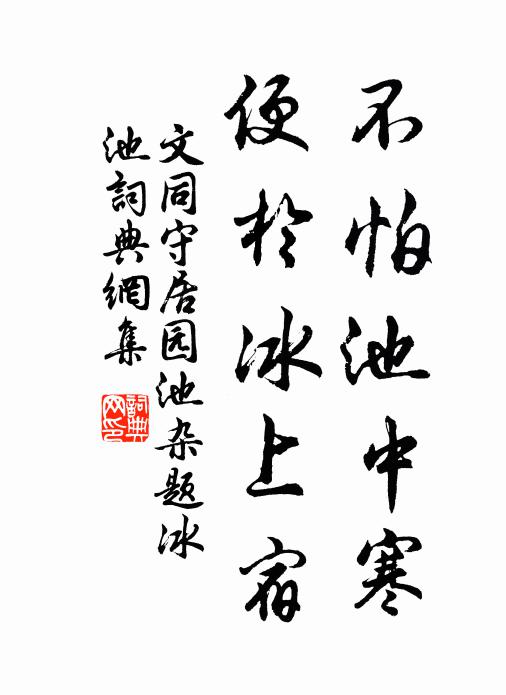 不怕池中寒
便於冰上宿
文同守居园池杂题冰
池詞典網集
詞典
网印